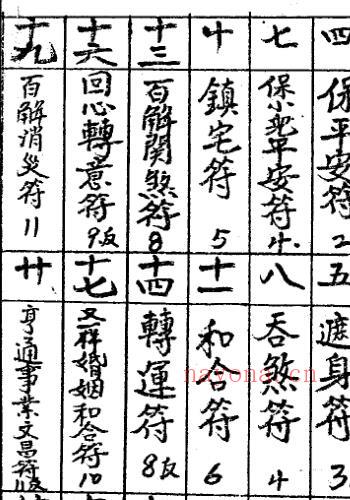 四
保平安符 2
五
遮身符 3
七
保兒平安符 4
八
吞煞符 4
十
鎮宅符 5
十一
和合符 6
十三
百解關煞符 8
十四
轉運符 8反
十六
回心轉意符 9反
十七
又一樣婚姻和合符 10
十九
百解消災符 11
廿
亨通事業文昌符
nayonal.cn